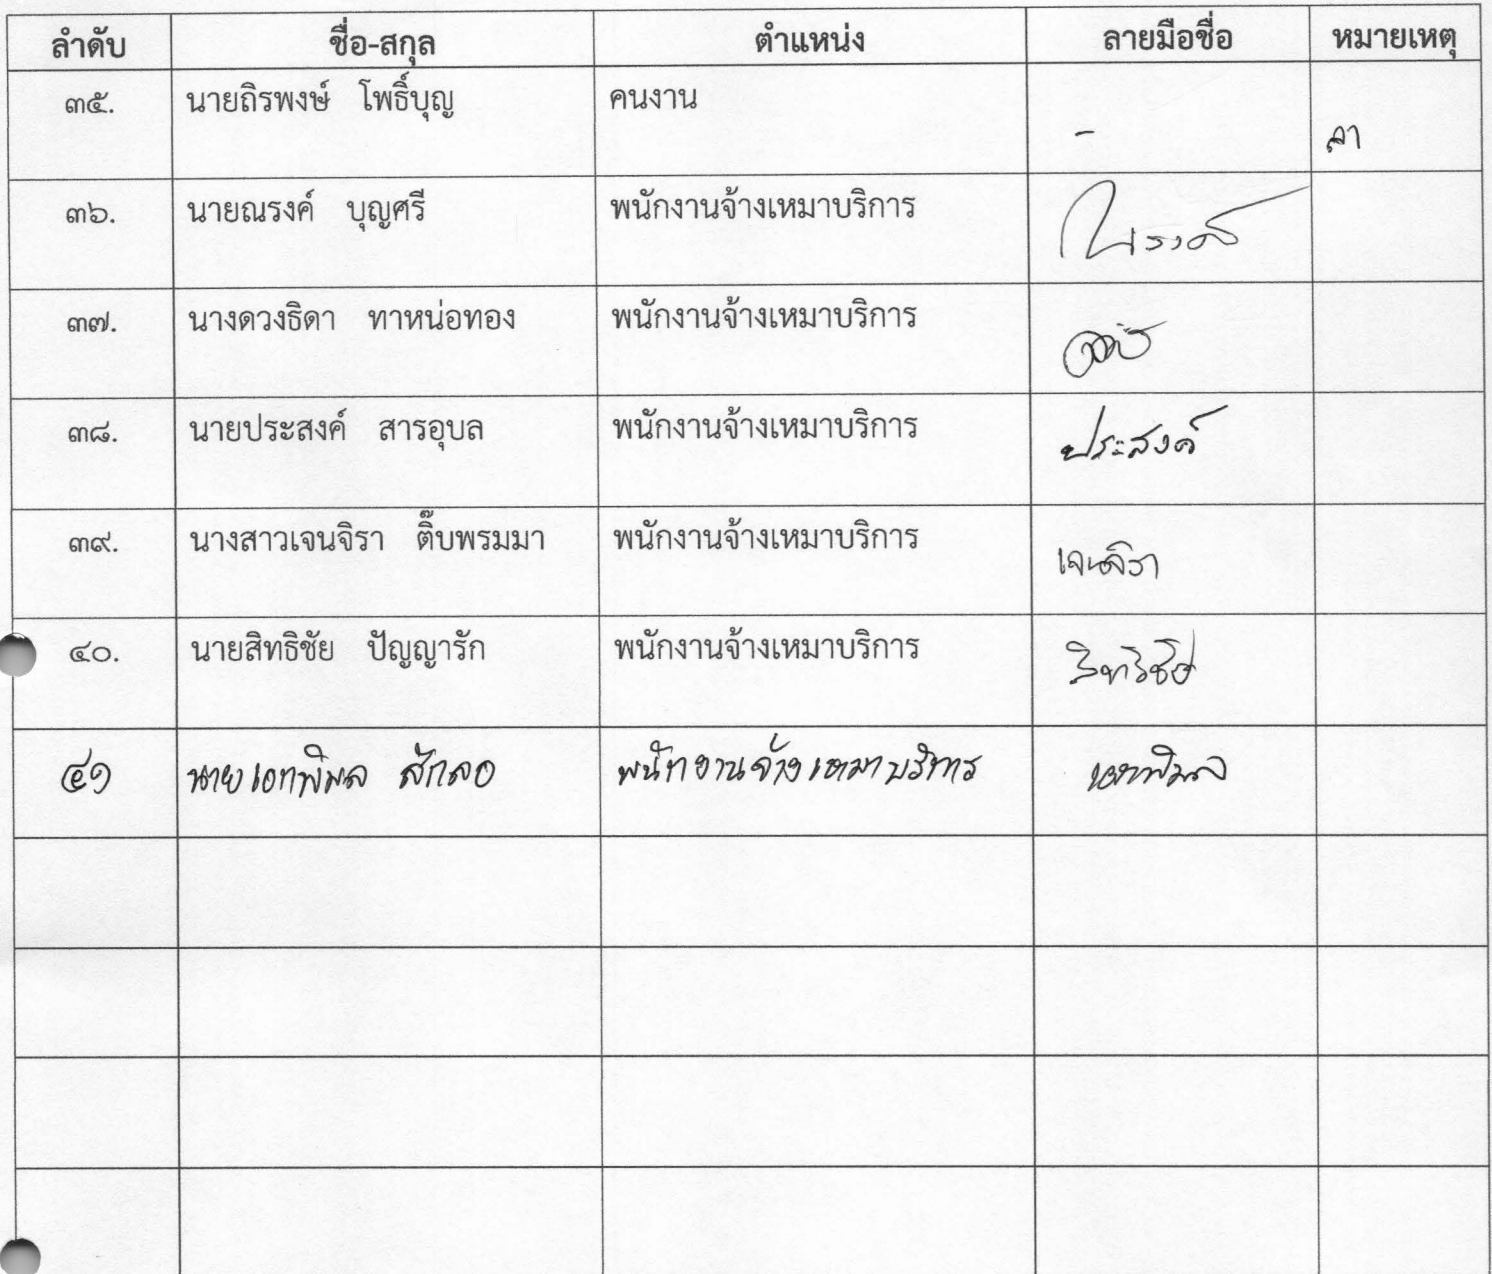 ลำดับ ชื่อ-สกุล ตำแหน่ง ลายมือชื่อ หมายเหตุ
๓๕. นายถิรพงษ์ โพธิ์บุญ คนงาน - ลา
๓๖. นายณรงค์ บุญศรี พนักงานจ้างเหมาบริการ ณรงค์
๓๗. นางดวงธิดา ทาหน่อทอง พนักงานจ้างเหมาบริการ
๓๘. นายประสงค์ สารอุบล พนักงานจ้างเหมาบริการ ประสงค์
๓๙. นางสาวเจนจิรา ติ๊บพรมมา พนักงานจ้างเหมาบริการ เจนจิรา
๔๐. นายสิทธิชัย ปัญญารัก พนักงานจ้างเหมาบริการ สิทธิชัย
๔๑ นายเอกพิมล สักลอ พนักงานจ้างเหมาบริการ เอกพิมล